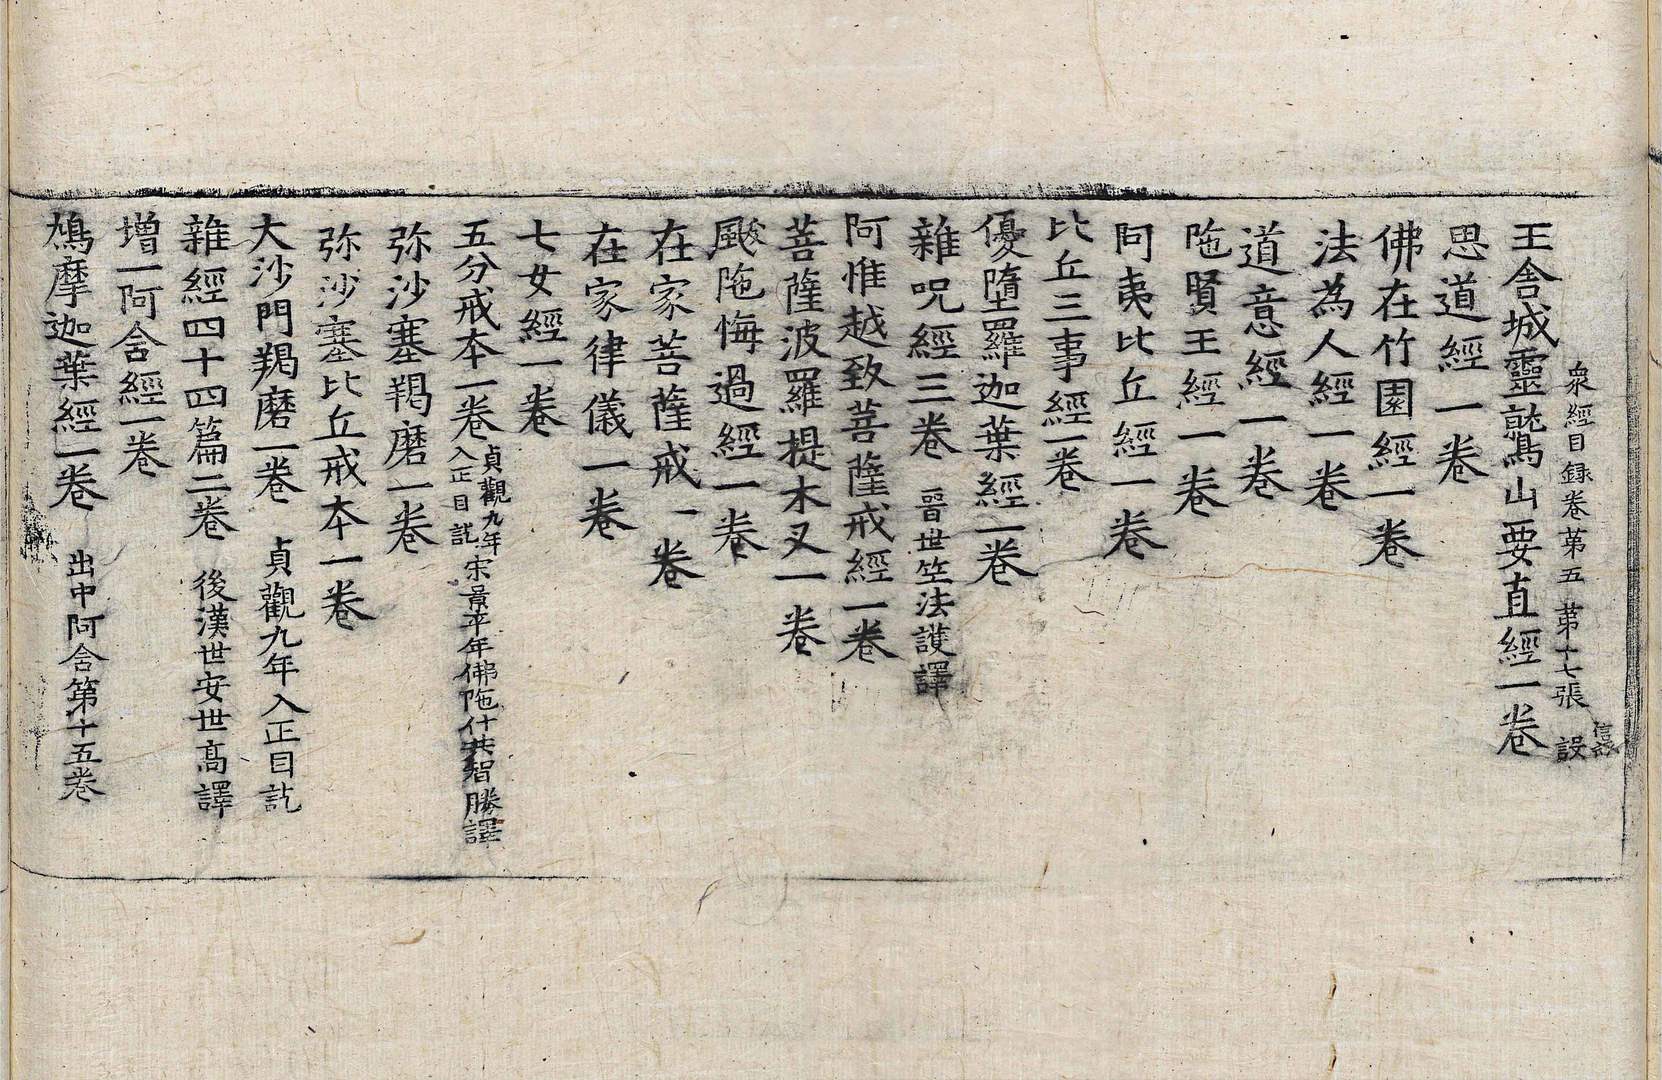 衆經目録卷苐五　苐十七張　設
王舎城靈鷲山要直經一卷
思道經一卷
佛在竹園經一卷
法為人經一卷
道意經一卷
陁賢王經一卷
阿夷比丘經一卷
比丘三事經一卷
優墮羅迦葉經一卷
雜呪經三卷　晉世竺法護譯
阿惟越致菩薩戒經一卷
菩薩波羅提木叉一卷
颰陁悔過經一卷
在家菩薩戒一卷
在家律儀一卷
七女經一卷
五分戒本一卷　貞觀九年入正目訖　宋景平年佛陁什共智勝譯
弥沙塞羯磨一卷
弥沙塞比丘戒本一卷
大沙門羯磨一卷　貞觀九年入正目訖
雜經四十四篇二卷　後漢世安世高譯
增一阿含經一卷
鳩摩迦葉經一卷　出中阿含第十五卷